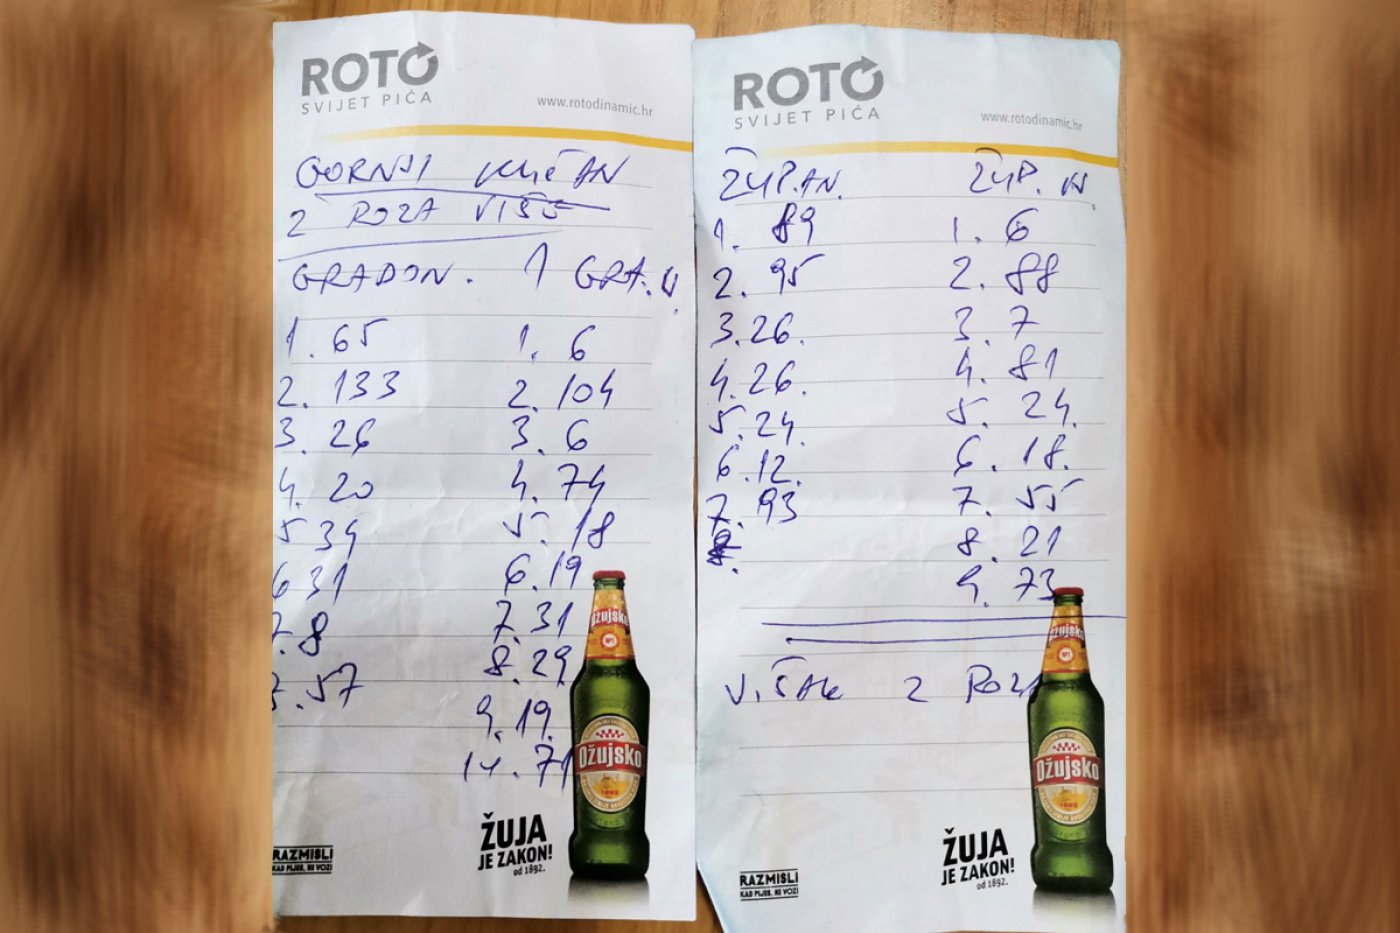 ROTO
SVIJET PIĆA
www.rotodinamic.hr
GORNJI KLIČAN
2 ROZA VIŠE
GRADON. 1 GRA.V.
1. 65 1. 6
2. 133 2. 104
3. 26 3. 6
4. 20 4. 74
5 34 5. 18
6 31 6. 19
7. 8 7. 31
7. 57 8. 29
9. 19.
14. 71
Ožujsko
Ožujsko
1892
ŽUJA
JE ZAKON!
od 1892.
RAZMISLI
KAD PIJEŠ, NE VOZI
ROTO
SVIJET PIĆA
www.rotodinamic.hr
ŽUP.AN. ŽUP. V.
1. 89 1. 6
2. 95 2. 88
3. 26. 3. 7
4. 26. 4. 81
5. 24. 5. 24.
6. 12. 6. 18.
7. 93 7. 55
8. 21
9. 73
VIŠAK 2 ROZA
Ožujsko
Ožujsko
1892
ŽUJA
JE ZAKON!
od 1892.
RAZMISLI
KAD PIJEŠ, NE VOZI